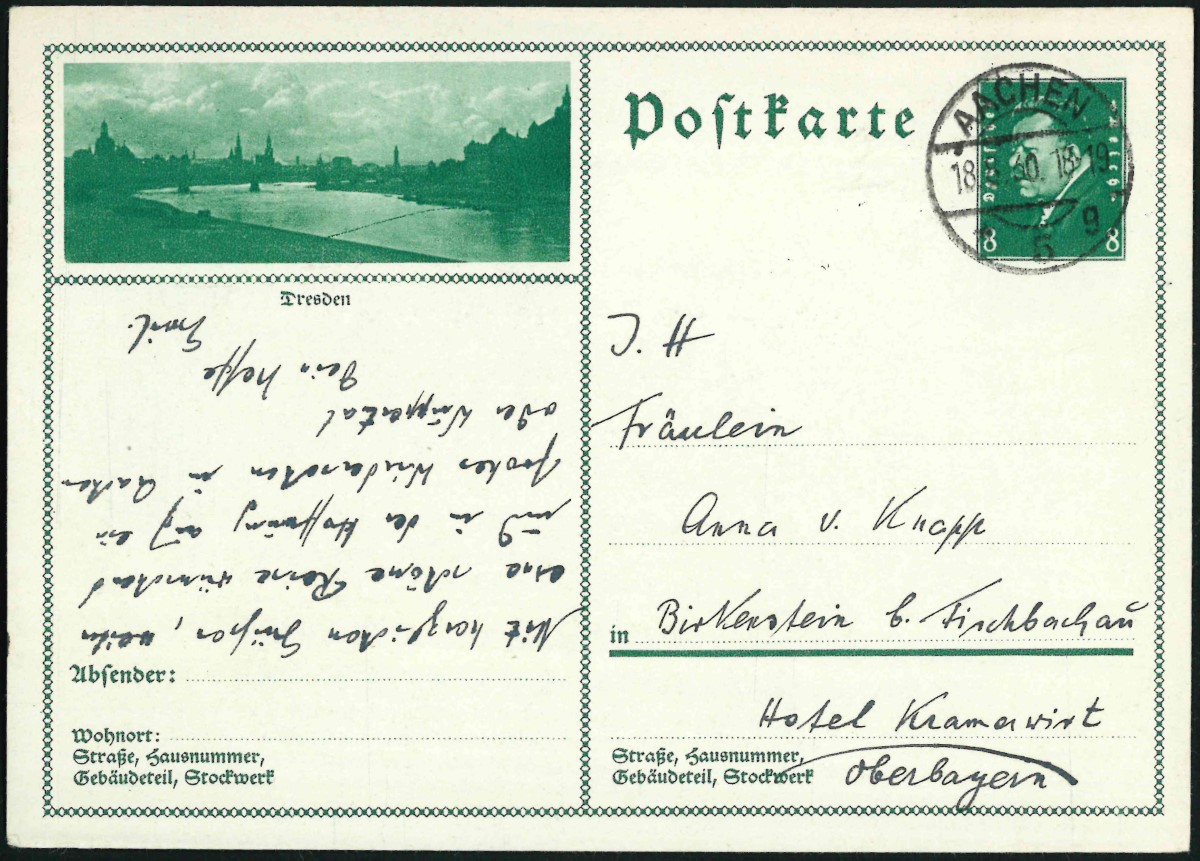 Dresden
Mit herzlichen Grüßen, weiter
eine schöne Reise wünschend
und in der Hoffnung auf ein
frohes Wiedersehen in Aachen
oder Wuppertal
Dein Neffe
Absender:
Wohnort:
Straße, Hausnummer,
Gebäudeteil, Stockwerk
Postkarte
AACHEN
18. 30. 18-19
5 g
8 8
J. H
Fräulein
Anna v. Knapp
in Birkenstein b. Fischbachau
Hotel Kramerwirt
Straße, Hausnummer,
Gebäudeteil, Stockwerk
Oberbayern